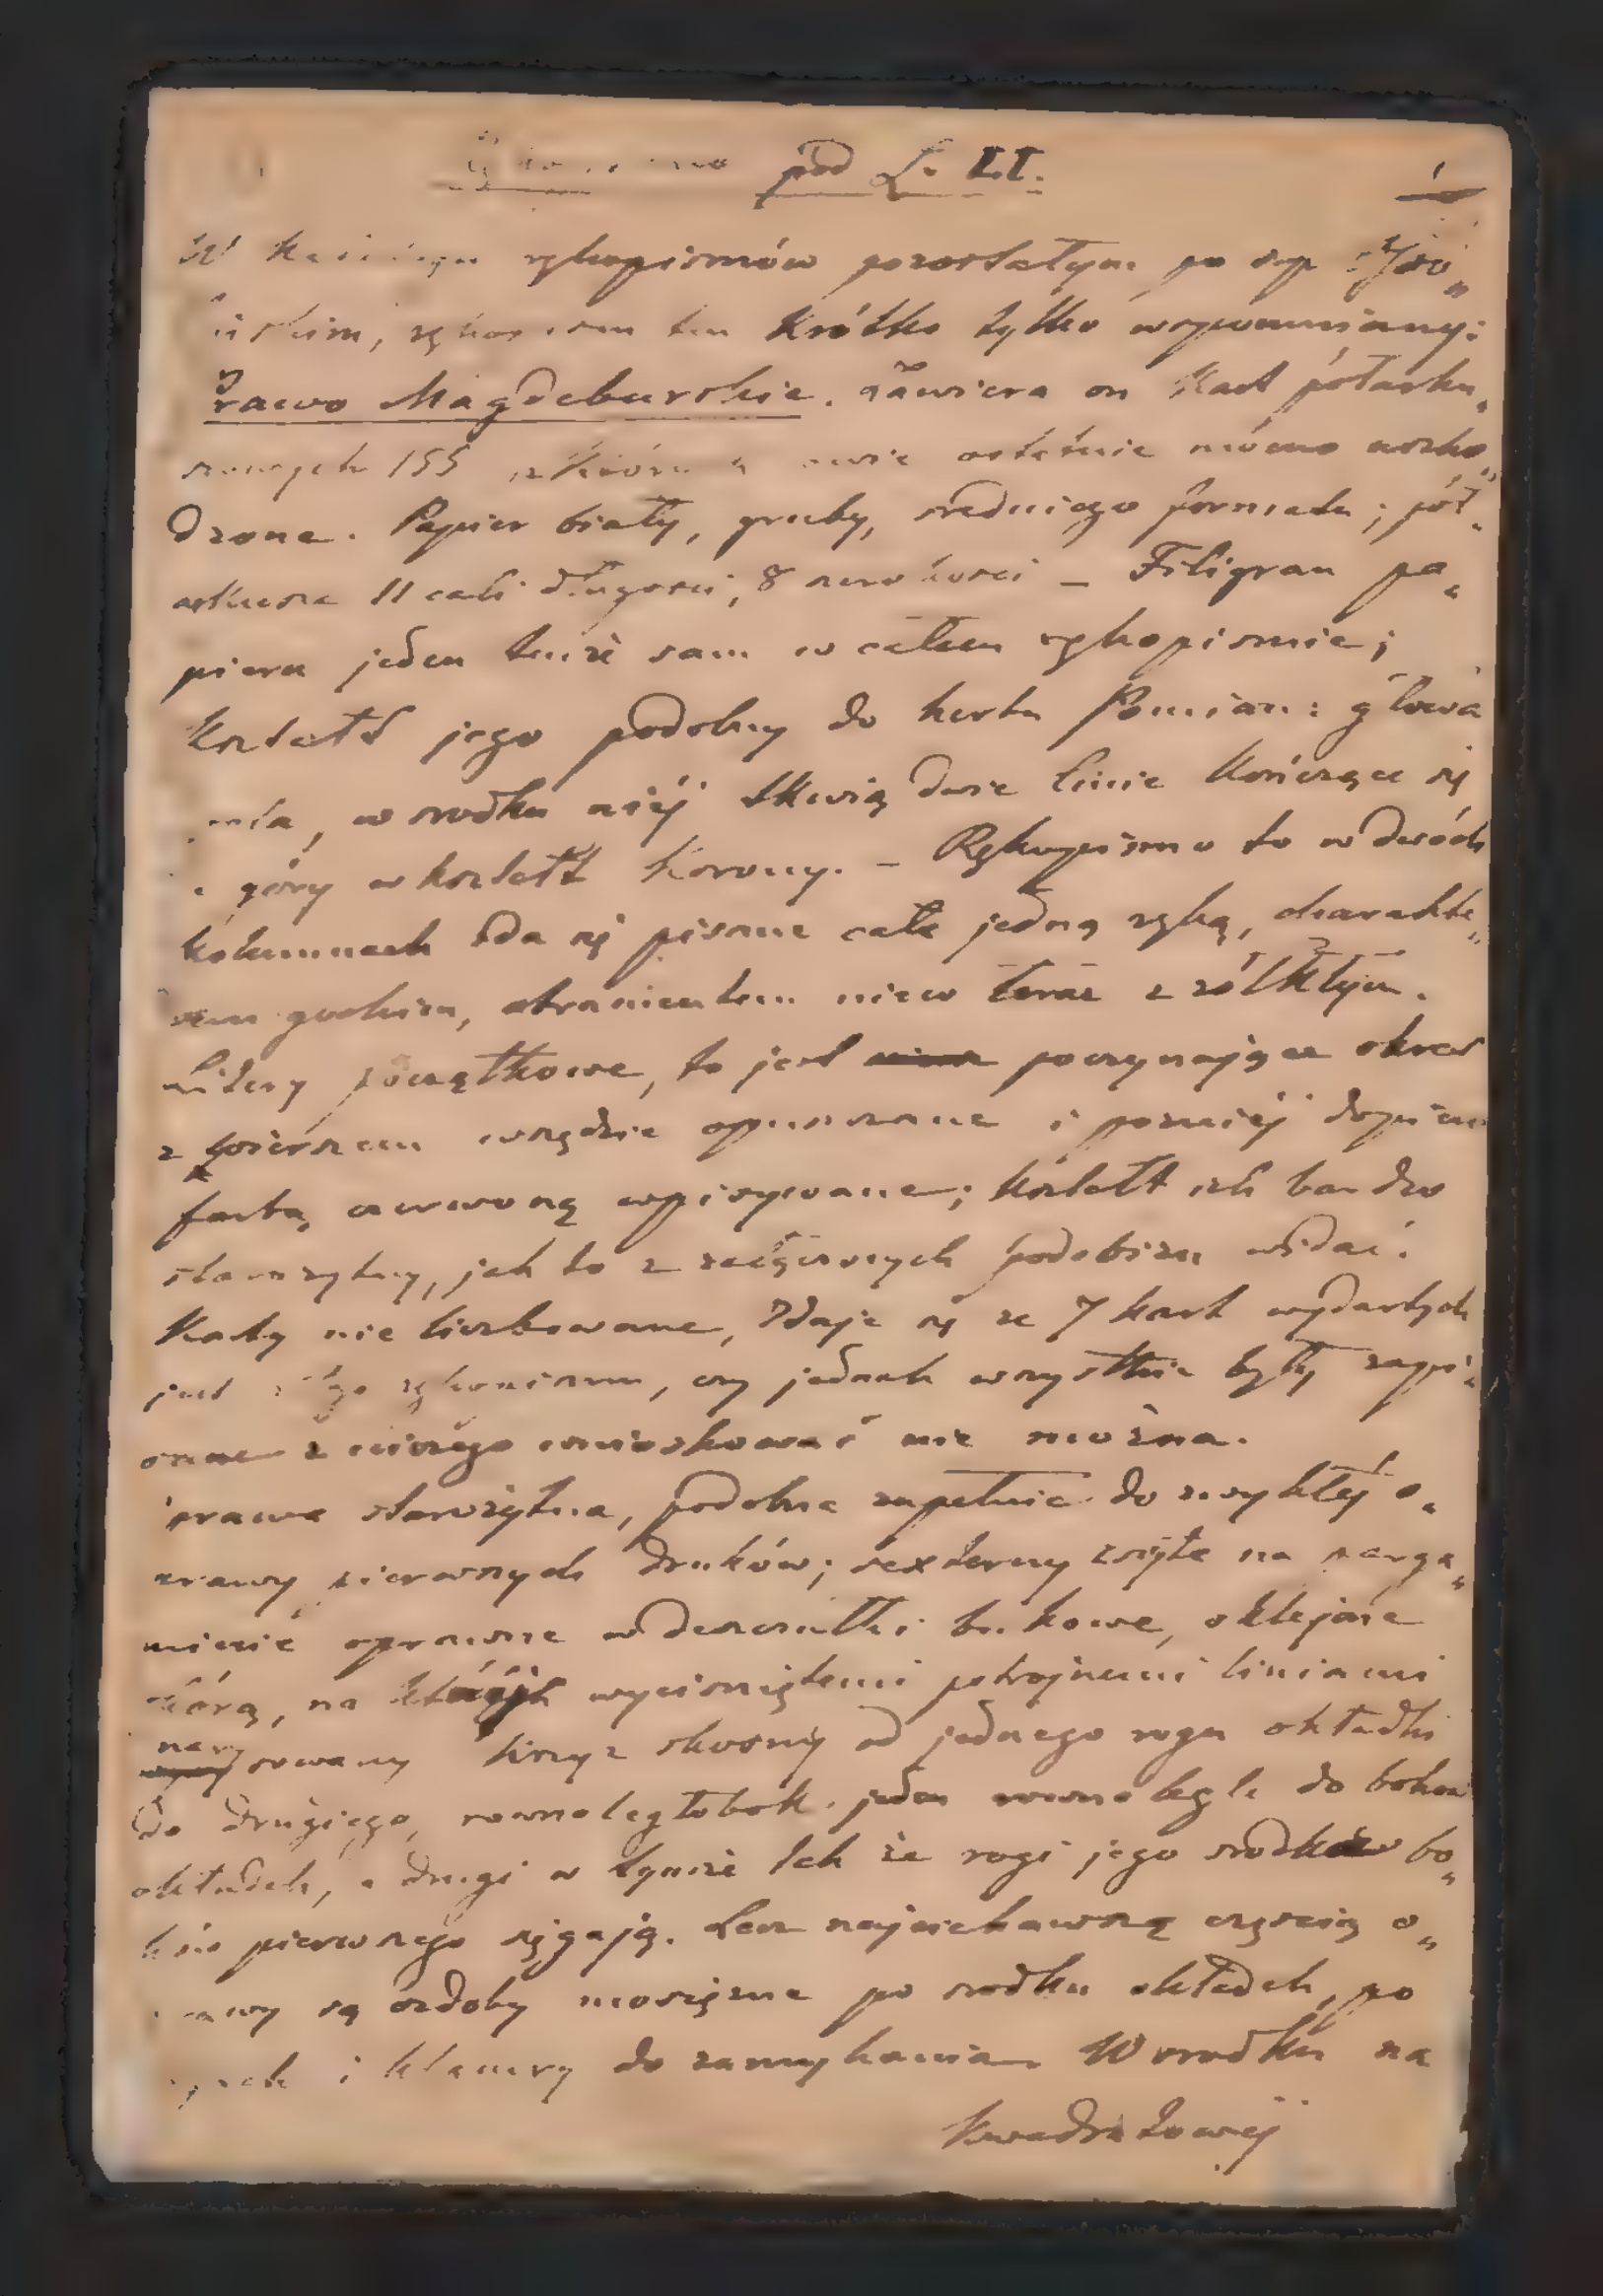 pod L. II.
W rękopismów pozostałym po śp.
tylko krótko wspomniany:
Prawo Magdeburskie. Zawiera on kart półarku„
szowych 155, ostatnie mocno uszko„
dzone. Papier biały, gruby, średniego formatu; pół„
arkusze 11 cali długości, 8 szerokości – Filigran pa„
pieru jeden tenże sam w całem rękopismie;
Kształt jego podobny do herbu Pomian: głowa
, w srodku niéj tkwią dwie linie kończące się
u góry w kształt korony. – Rękopismo to w dwóch
kolumnach zda się pisane całe jedną ręką, charakte„
rem gockim, atramentem nieco teraz zżółkłym.
Litery początkowe, to jest poczynające okres
z wierszem wszędzie opuszczane i pozniéj dopiero
farbą czerwoną wpisywane; kształt ich bardzo
starożytny, jak to z załączonych podobizn widać.
Karty nie liczbowane, Zdaje się ze 7 kart wydartych
jest z tego rękopismu, czy jednak wszystkie były zapi„
sane z niczego wnioskować nie można.
Oprawa starożytna, podobna zupełnie do zwykłéj o„
prawy pierwszych druków; sexterny zszyte na perga„
minie oprawne w deszczułki bukowe, oklejone
skórą, na któréj wyciśniętemi potrójnemi liniami
narysowany krzyż skośny od jednego rogu okładki
do drugiego, równoległobok jeden równolegle do boków
okładek, a drugi w tymże tak że rogi jego srodków bo„
ków pierwszego sięgają. Lecz najciekawszą częścią o„
prawy są ozdoby mosiężne po srodku okładek, po
rogach i klamry do zamykania. W srodku na
kwadratowéj